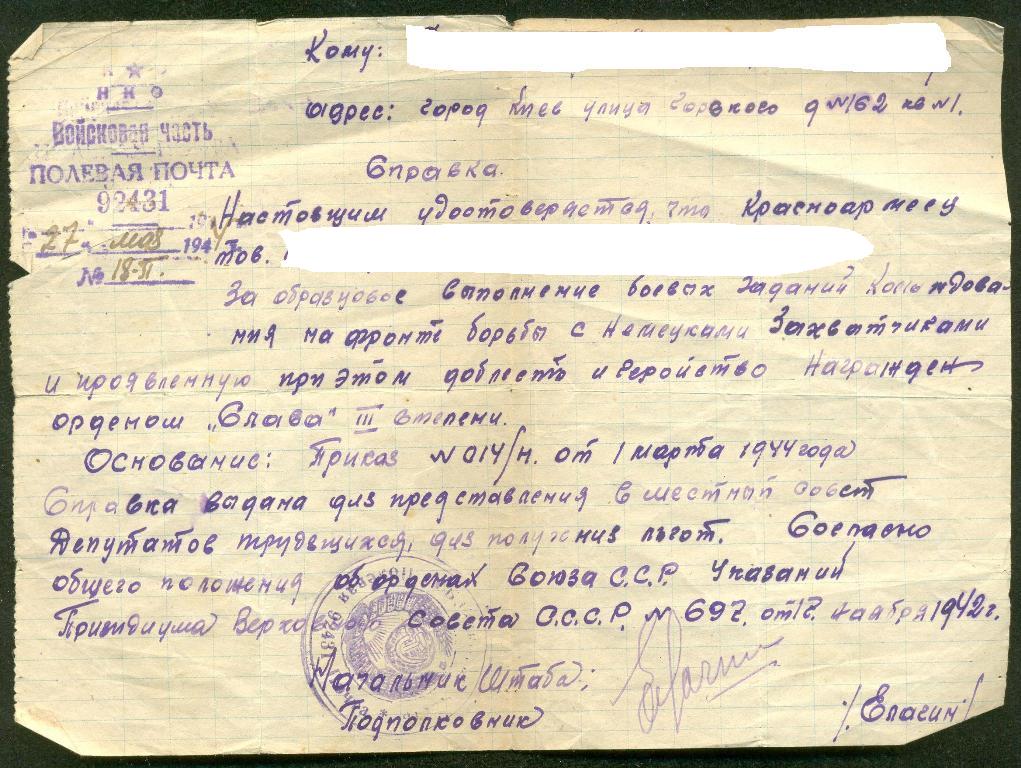 Кому:
адрес: город Киев улица Горького д №162 кв №1.
НКО
Войсковая часть
ПОЛЕВАЯ ПОЧТА
92431
"27" мая 1944 г.
№ 18-II.
Справка.
Настоящим удостоверяется, что Красноармеец
тов.
За образцовое выполнение боевых заданий Командова-
ния на фронте борьбы с немецками Захватчиками
и проявленную при этом доблесть и Геройство Награжден
орденом „Слава" III степени.
Основание: Приказ №014/н. от 1 марта 1944 года
Справка выдана для представления в местный совет
Депутатов трудящихся, для получения льгот. Согласно
общего положения об орденах Союза С.С.Р. Указаний
Призидиума Верховного Совета С.С.С.Р. № 697. от 17. наабря 1942 г.
92431
Начальник Штаба:
Подполковник /Еласин/